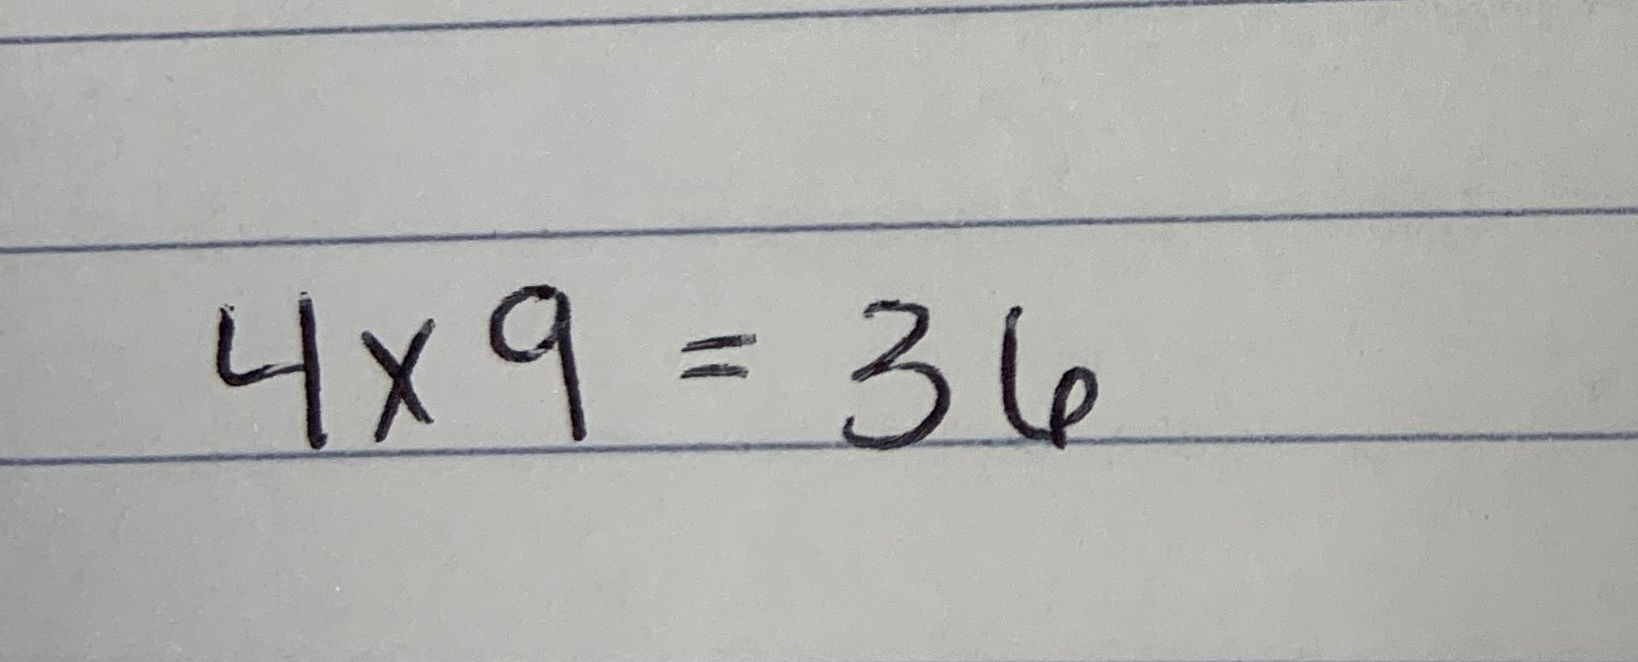 4x9 = 36